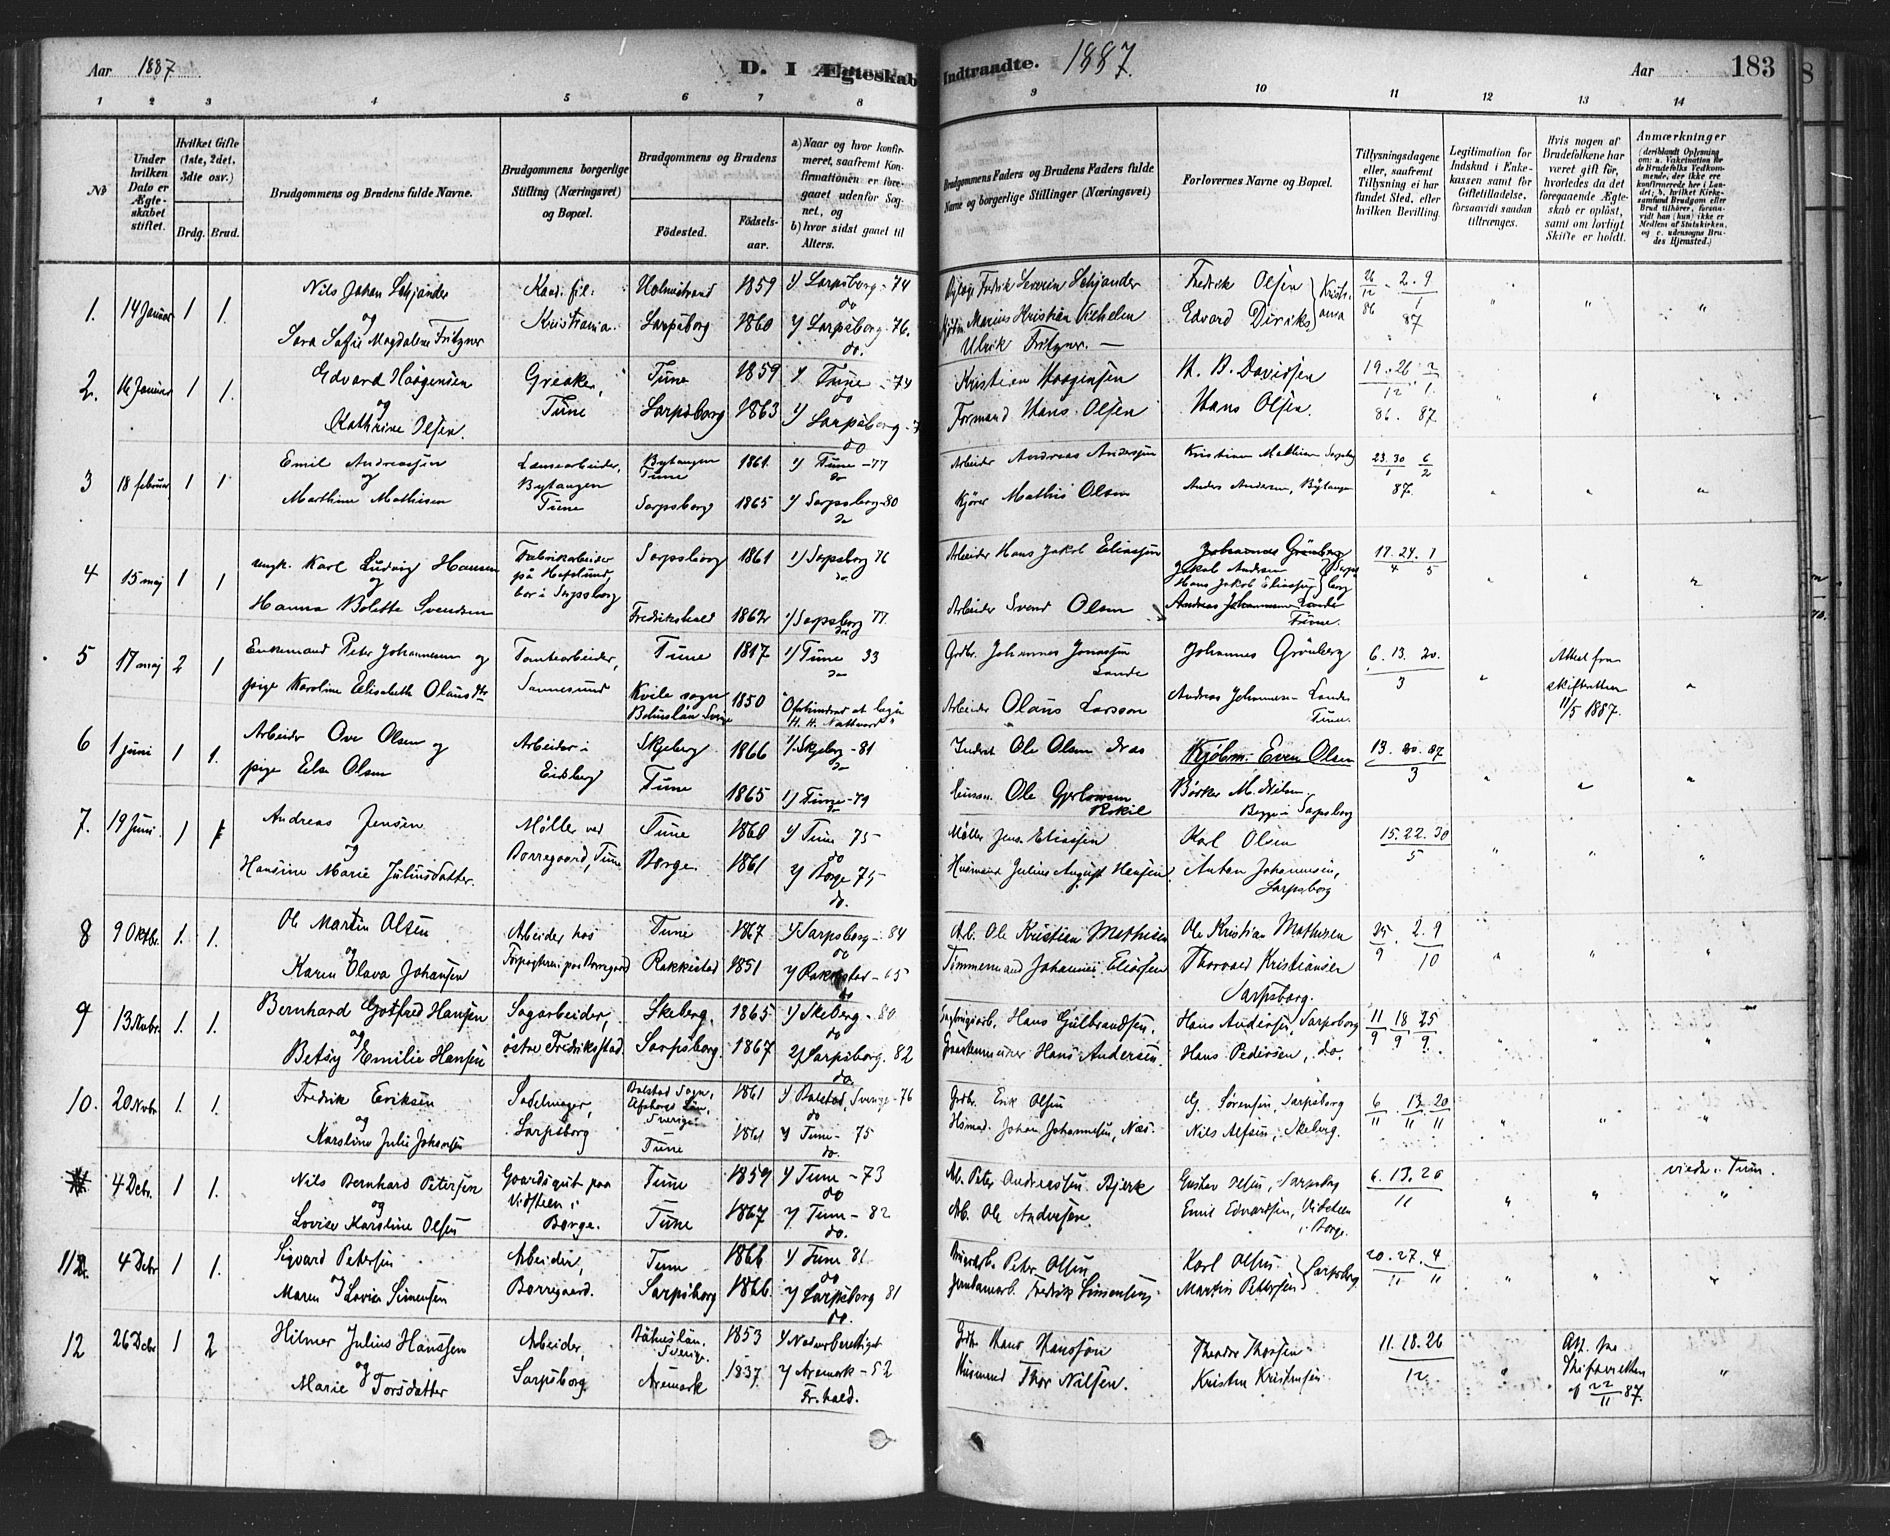 Aar 1887
D. I Ægteskab Indtraadte. 1887.
Aar 183
1 2 3 4 5 6 7 8 9 10 11 12 13 14
No
Under hvilken Dato er Ægteskabet stiftet.
Hvilket Gifte (1ste, 2det, 3die osv.)
Brdg. Brud.
Brudgommens og Brudens fulde Navne.
Brudgommens borgerlige Stilling (Næringsvei) og Bopæl.
Brudgommens og Brudens
Fødested.
Fødselsaar.
a) Naar og hvor konfirmeret, saafremt Konfirmationen er foregaaet udenfor Sognet, og
b) hvor sidst gaaet til Alters.
Brudgommens Faders og Brudens Faders fulde Navne og borgerlige Stillinger (Næringsvei)
Forlovernes Navne og Bopæl.
Tillysningsdagene eller, saafremt Tillysning ei har fundet Sted, efter hvilken Bevilling.
Legitimation for Indskud i Enkekassen samt for Giftetilladelse, forsaavidt saadan tiltrænges.
Hvis nogen af Brudefolkene har været gift før, hvorledes da det foregaaende Ægteskab er opløst, samt om lovligt Skifte er holdt.
Anmærkninger
(deriblandt Oplysning om: a. Vakcination for de Brudefolks Vedkommende, der ikke ere konfirmerede her i Landet; b. hvilket Kirkesamfund Brudgom eller Brud tilhører, forsaavidt han (hun) ikke er Medlem af Statskirken, og c. udensogns Brudes Hjemsted.)
1. 14 Januar 1 1.
Nils Johan Schjander Kand. fil. Holmestrand 1859 1/ Sarpsborg - 74 Fredrik Severin Schjander Fredrik Olsen
og do
Sara Sofie Magdalene Fritzner Kristiania. Sarpsborg 1860 1/ Sarpsborg - 76. Marius Kristian Vilhelm Edvard Diriks
do. Ulrik Fritzner. 26/12 86 2. 9 1 87
2. 16 Januar 1 1.
Edvard Haagensen Greaker, Tune 1859 1/ Tune - 74 Kristian Haagensen H. B. Davidsen 19. 26 2
og do 12 1.
Kathrine Olsen. Tune Sarpsborg 1863 1/ Sarpsborg - Formand Hans Olsen Hans Olsen. 86. 87
do
3 18 februar 1 1
Emil Andreassen Lansearbeider, Bytangen 1861. 1/ Tune - 77 Arbeider Andreas Andersen Kristian Mathisen Sarpsborg 23. 30 6
og Bytangen Tune do 1 2
Marthine Mathisen Tune Sarpsborg 1865 1/ Sarpsborg - 80 Kjører Mathis Olsen Anders Andersen, Bytangen 87.
do
4 15 maj 1 1
ungk. Karl Ludvig Hansen Fabrikarbeider Sarpsborg 1861 1/ Sarpsborg 76 Arbeider Hans Jakob Eliassen Johannes Grønberg 17. 24. 1
og på Hafslund, do Jakob Andersen 4 5
bor i Sarpsborg Hans Jakob Eliassen Sarpsborg
Hanna Bolette Svendsen Fredrikshald 1862 1/ Sarpsborg 77. Arbeider Svend Olsen Andreas Johannesen Lande
do Tune.
5 17 maj 2 1
Enkemand Peter Johannesen og Tomtearbeider, Tune 1817 1/ Tune 33 Grdbr. Johannes Jonassen Johannes Grønberg 6. 13. 20. Attest fra
Sannesund do Lande 3 skifteretten
pige Karoline Elisabeth Olausdtr Kvile sogn 1850 "Oforhindrad at begå Arbeider Olaus Larsson Andreas Johannesen Lande 11/5 1887.
Bohuslän Sverige H. H. Nattvard" Tune.
6 1 juni 1 1.
Arbeider Ove Olsen og Arbeider i Skjeberg 1866 1/ Skjeberg - 81 Inderst Ole Olsen Kjøbm. Even Olsen 13. 20. 27
do 3
pige Else Olsen Eidsberg Tune 1865 1/ Tune - 79 Ole Bødker M. Nielsen
Begge i Sarpsborg
7. 19 Juni. 1 1
Andreas Jensen Møller ved Tune 1860 1/ Tune 75 Møller Jens Eliassen Karl Olsen 15. 22. 30
og Borregaard, Tune do 5
Hansine Marie Juliusdatter. Borge. 1861 1/ Borge 75 Husmand Julius August Hansen Anton Johannesen,
do. Sarpsborg
8 9 Oktbr. 1. 1.
Ole Martin Olsen Arbeider hos Tune 1867 1/ Sarpsborg - 84 Arb. Ole Kristian Mathisen Ole Kristian Mathisen 25 2. 9
og do 9 10
Karen Olava Johansen Rakkestad 1851 1/ Rakkestad - 65 Tømmermand Johannes Eliassen Thorvald Kristiansen
do Sarpsborg.
9 13. Nvbr. 1. 1.
Bernhard Gotfred Hansen Sagarbeider, Skeberg. 1865 1/ Skeberg - 80 Hans Gulbrandsen. Hans Andersen, Sarpsborg 11 18 25
og do 9 9 9.
Betsy Emilie Hansen østre Fredrikstad Sarpsborg. 1867 1/ Sarpsborg. 82 Hans Andersen Hans Pedersen, do.
do.
10. 20 Nvbr 1. 1.
Fredrik Eriksen Sadelmager, Bolstad Sogn, 1861 1/ Bolstad, Sverige - 76 Grdbr. Erik Olsen G. Sørensen, Sarpsborg 6 13 20
og Elfsborgs Län, do 11 11 11
Sverige.
Karoline Julie Johansen Sarpsborg Tune 1861 1/ Tune - 75 Hsmd. Johan Johannesen, Næs Nils Alfsen, Skeberg.
do.
4 Dcbr. 1 1.
Nils Bernhard Petersen Gaardsgut paa Tune 1859 1/ Tune - 73 Arb. Peter Andreassen Bjerk Gustav Olsen, Sarpsborg 6. 13. 20 viede i Tune.
og Vidsteen i do 11
Lovise Karoline Olsen Borge. Tune 1867 1/ Tune - 82 Arb. Ole Andersen. Emil Edvardsen, Vidsteen
do. i Borge.
11 4 Dcbr 1 1.
Sigvard Petersen Arbeider, Tune 1866 1/ Tune 81 Peter Olsen Karl Olsen 20. 27. 4
og do 11 11
Maren Lovise Simensen Borregaard. Sarpsborg 1866. 1/ Sarpsborg 81 Fredrik Simensen Martin Pettersen Sarpsborg
do.
12 26 Dcbr 1 2
Hilmer Julius Hanssen Arbeider, Båhuslän. 1853 1/ Nadverberettiget Grdb. Hans Hansson Theodor Thorsen 11. 18. 26 Att. fra
og Sverige. 12 Skifteretten
Marie Torsdatter Sarpsborg. Aremark 1837. 1/ Aremark - 52 Husmand Thor Nilsen. Kristen Kristensen af 22/11 87.
Fr.hald.